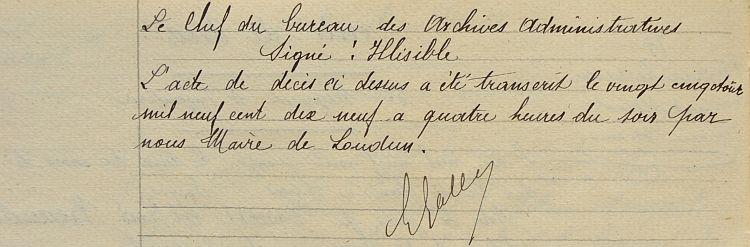 Le Chef du bureau des Archives Administratives
Signé : Illisible
L'acte de décès ci dessus a été transcrit le vingt cinq
mil neuf cent dix neuf a quatre heures du soir par
nous Maire de Loudun.